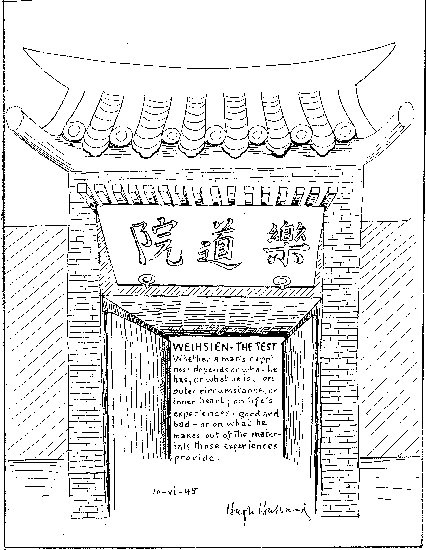 樂道院
WEIHSIEN - THE TEST
Whether a man's happi-
ness depends on what he
has, or what he is; on
outer circumstance, or
inner heart; on life's
experiences - good and
bad - or on what he
makes out of the mater-
ials those experiences
provide.
10-VI-45
Hugh Hubbard